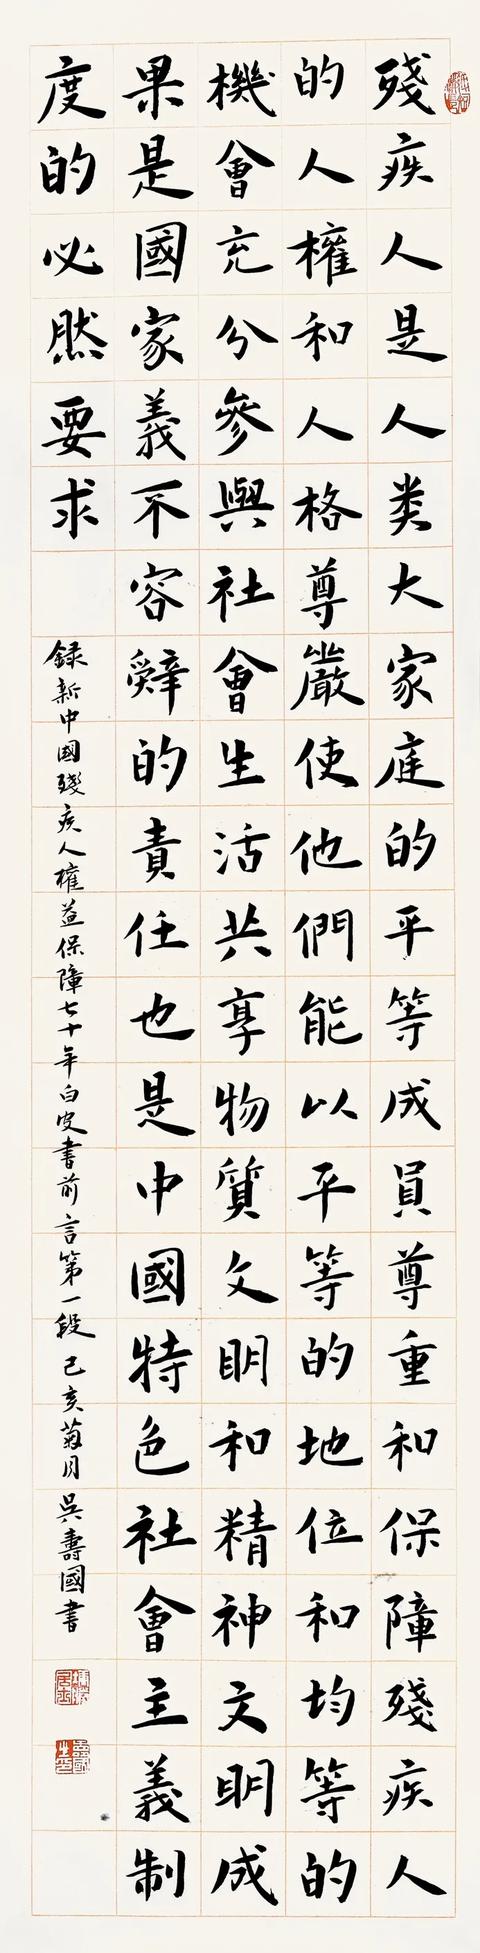 殘疾人是人类大家庭的平等成員尊重和保障殘疾人
的人權和人格尊嚴使他們能以平等的地位和均等的
機會充分參與社會生活共享物質文明和精神文明成
果是國家義不容辭的責任也是中國特色社會主義制
度的必然要求
録新中國殘疾人權益保障七十年白皮書前言第一段 己亥菊月 吳壽國書